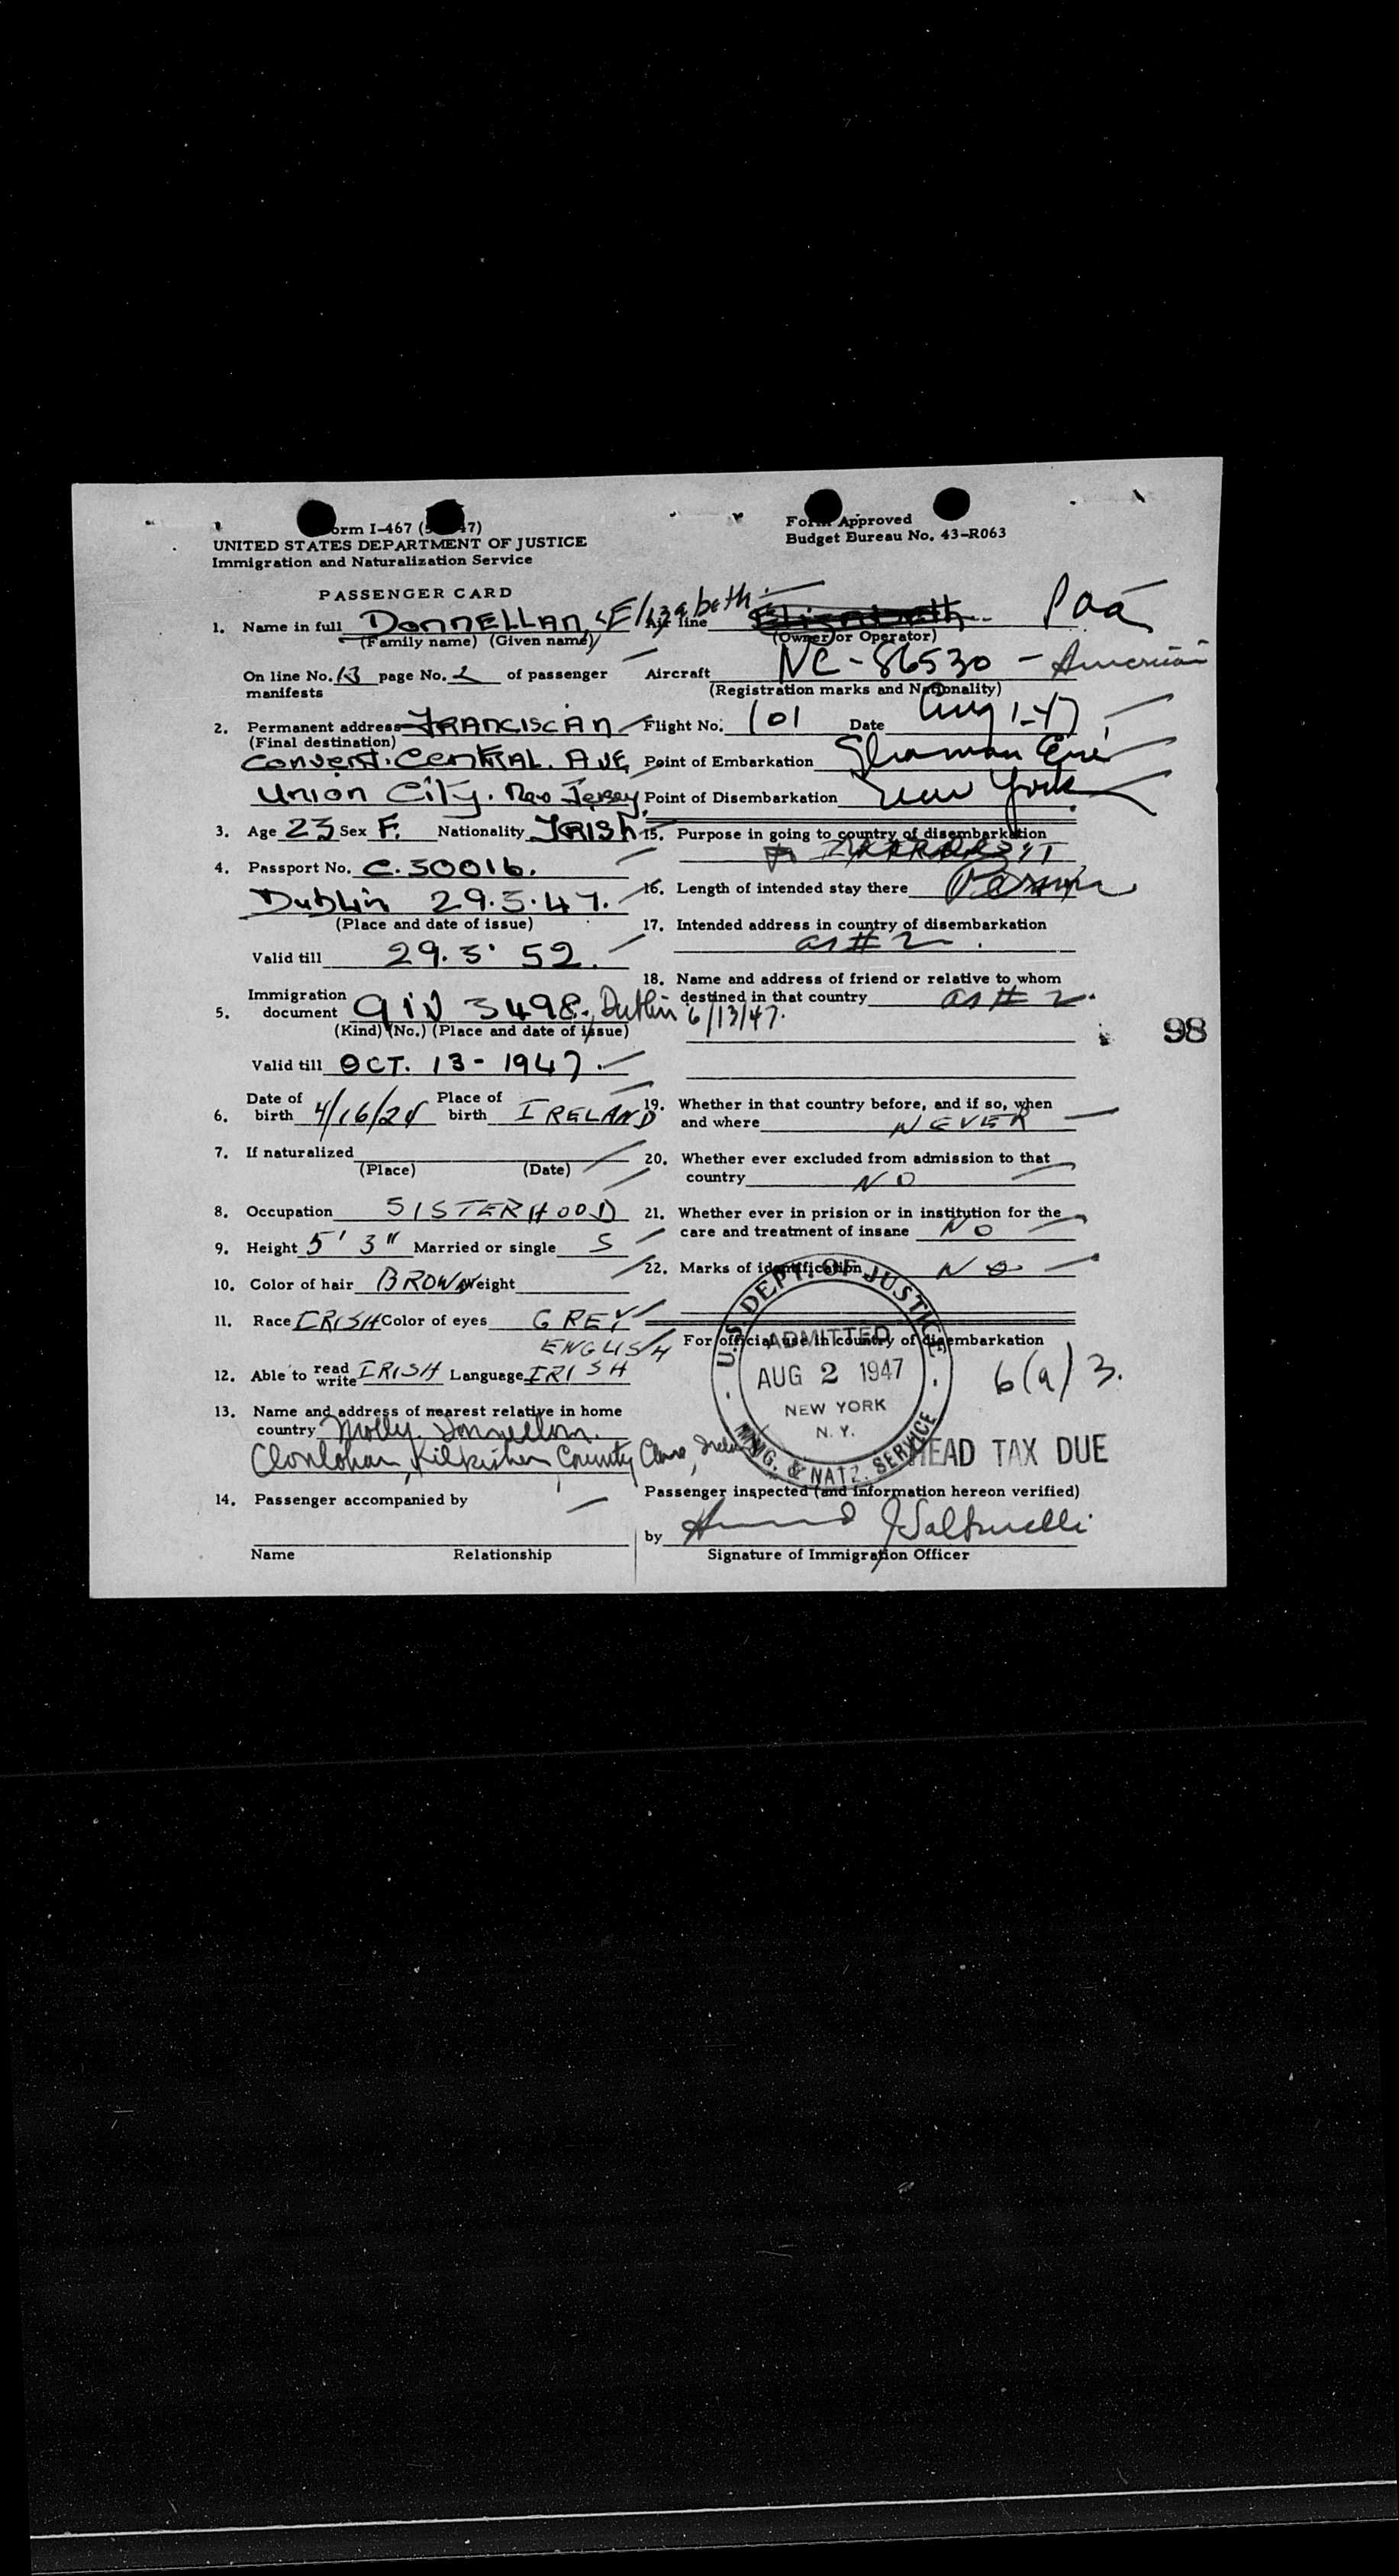 Form I-467 ( 47)
UNITED STATES DEPARTMENT OF JUSTICE
Immigration and Naturalization Service
Form Approved
Budget Bureau No. 43-R063
PASSENGER CARD
1. Name in full DONNELLAN, Elizabeth.
(Family name) (Given name)
Air line Elizabeth Paa
(Owner or Operator)
On line No. 13 page No. 2 of passenger manifests
Aircraft NC-86530 - American
(Registration marks and Nationality)
2. Permanent address FRANCISCAN
(Final destination)
Convent. CENTRAL. AVE
Union City. New Jersey
Flight No. 101 Date Aug 1-47
Point of Embarkation Shannon Eire
Point of Disembarkation New York
3. Age 23 Sex F. Nationality IRISH
4. Passport No. C.50016.
Dublin 29.5.47.
(Place and date of issue)
Valid till 29.5. 52.
5. Immigration document QIV 3498, Dublin 6/13/47.
(Kind) (No.) (Place and date of issue)
Valid till OCT. 13 - 1947.
6. Date of birth 4/16/24 Place of birth IRELAND
7. If naturalized
(Place) (Date)
8. Occupation SISTERHOOD
9. Height 5' 3" Married or single S
10. Color of hair BROWN Weight
11. Race IRISH Color of eyes GREY
ENGLISH
12. Able to read write IRISH Language IRISH
13. Name and address of nearest relative in home
country Molly Donnellan.
Clonlohan, Kilkishen County Clare, Ireland
14. Passenger accompanied by
Name Relationship
15. Purpose in going to country of disembarkation
16. Length of intended stay there Perm
17. Intended address in country of disembarkation
as # 2.
18. Name and address of friend or relative to whom
destined in that country as # 2.
98
19. Whether in that country before, and if so, when
and where NEVER
20. Whether ever excluded from admission to that
country NO
21. Whether ever in prision or in institution for the
care and treatment of insane NO
22. Marks of identification NO
For official use in country of disembarkation
U.S. DEPT. OF JUSTICE
ADMITTED
AUG 2 1947
NEW YORK
N. Y.
IMMIG. & NATZ. SERVICE
6(a)3.
HEAD TAX DUE
Passenger inspected (and information hereon verified)
by
Signature of Immigration Officer